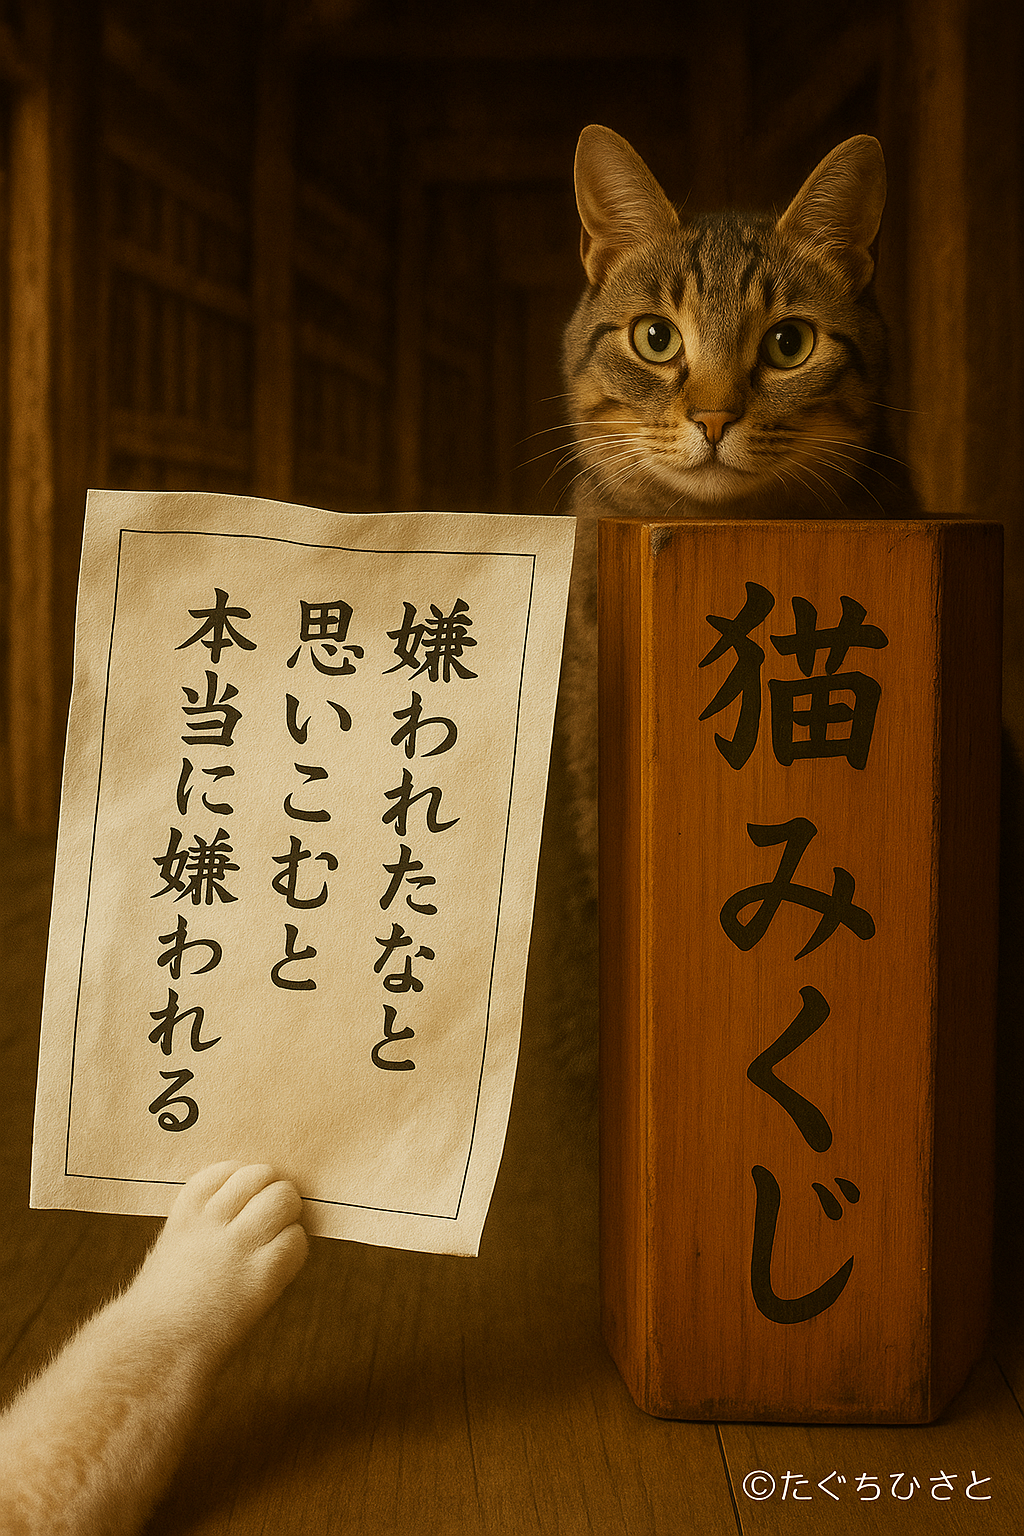 嫌われたなと
思いこむと
本当に嫌われる
猫みくじ
©たぐちひさと